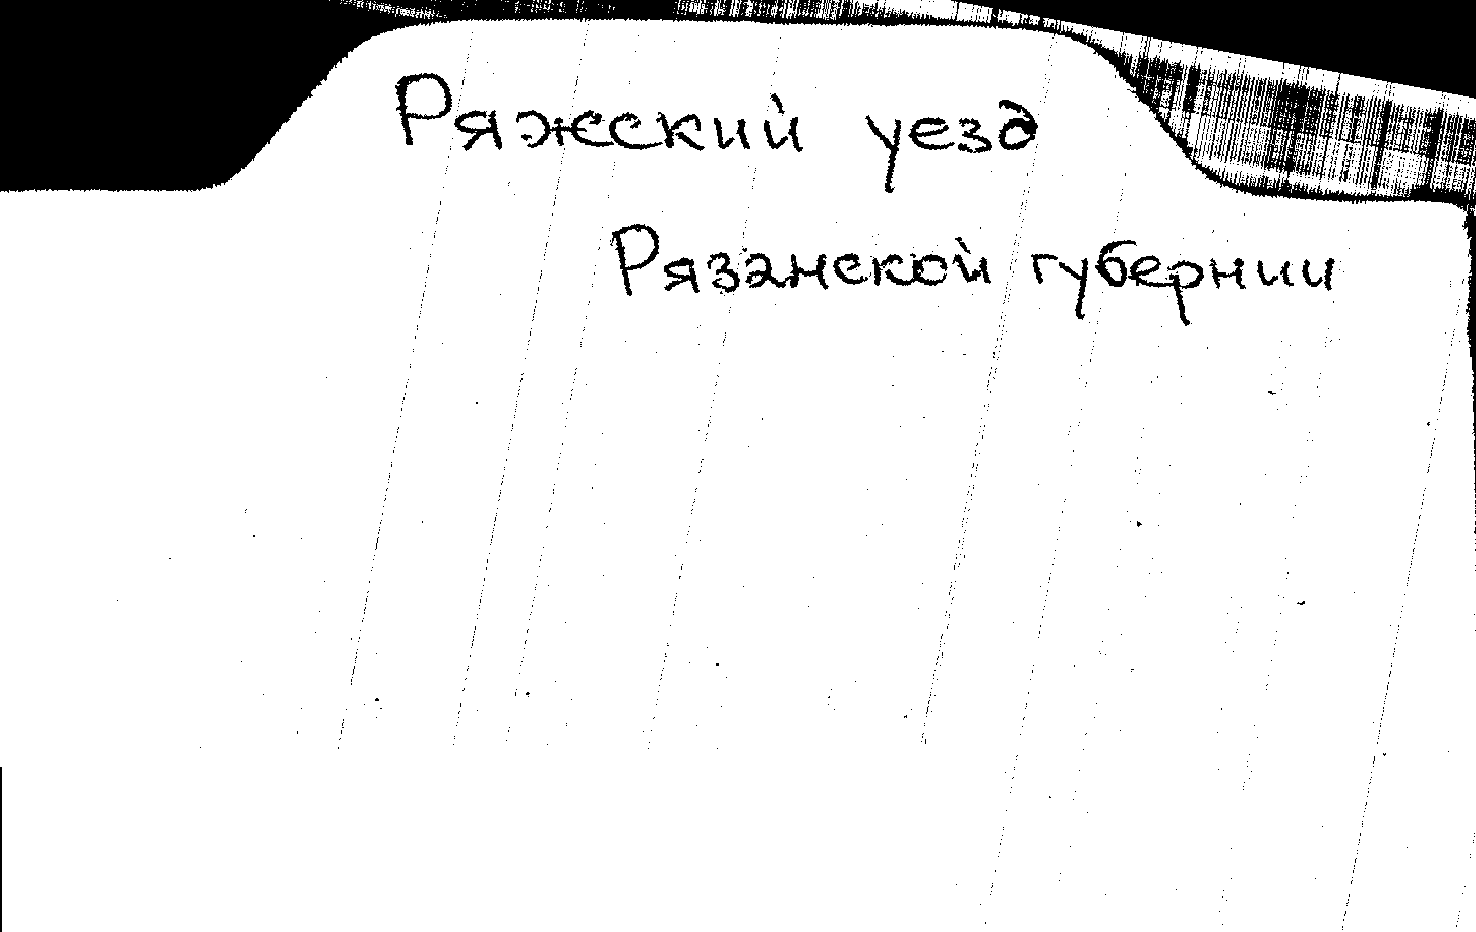 Ряжский уезд
Рязанской губернии